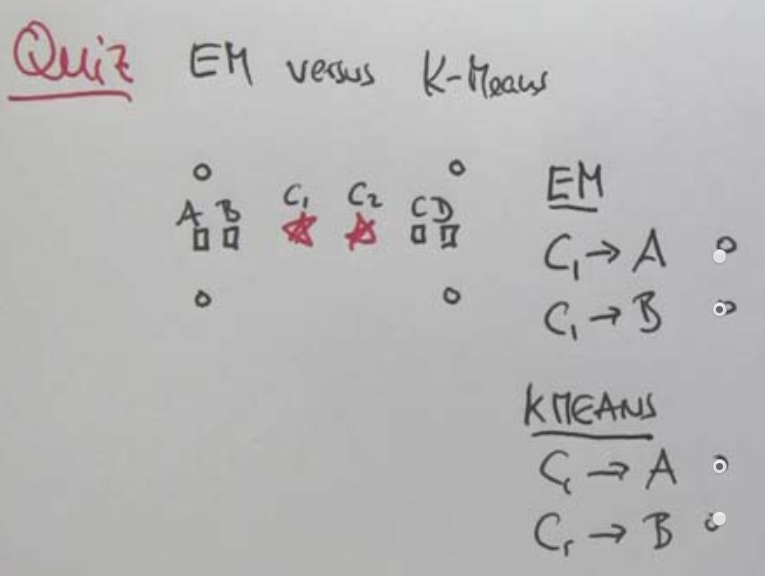 Quiz EM versus K-Means
A B C1 C2 C D
EM
C1 → A
C1 → B
KMEANS
C1 → A
C1 → B